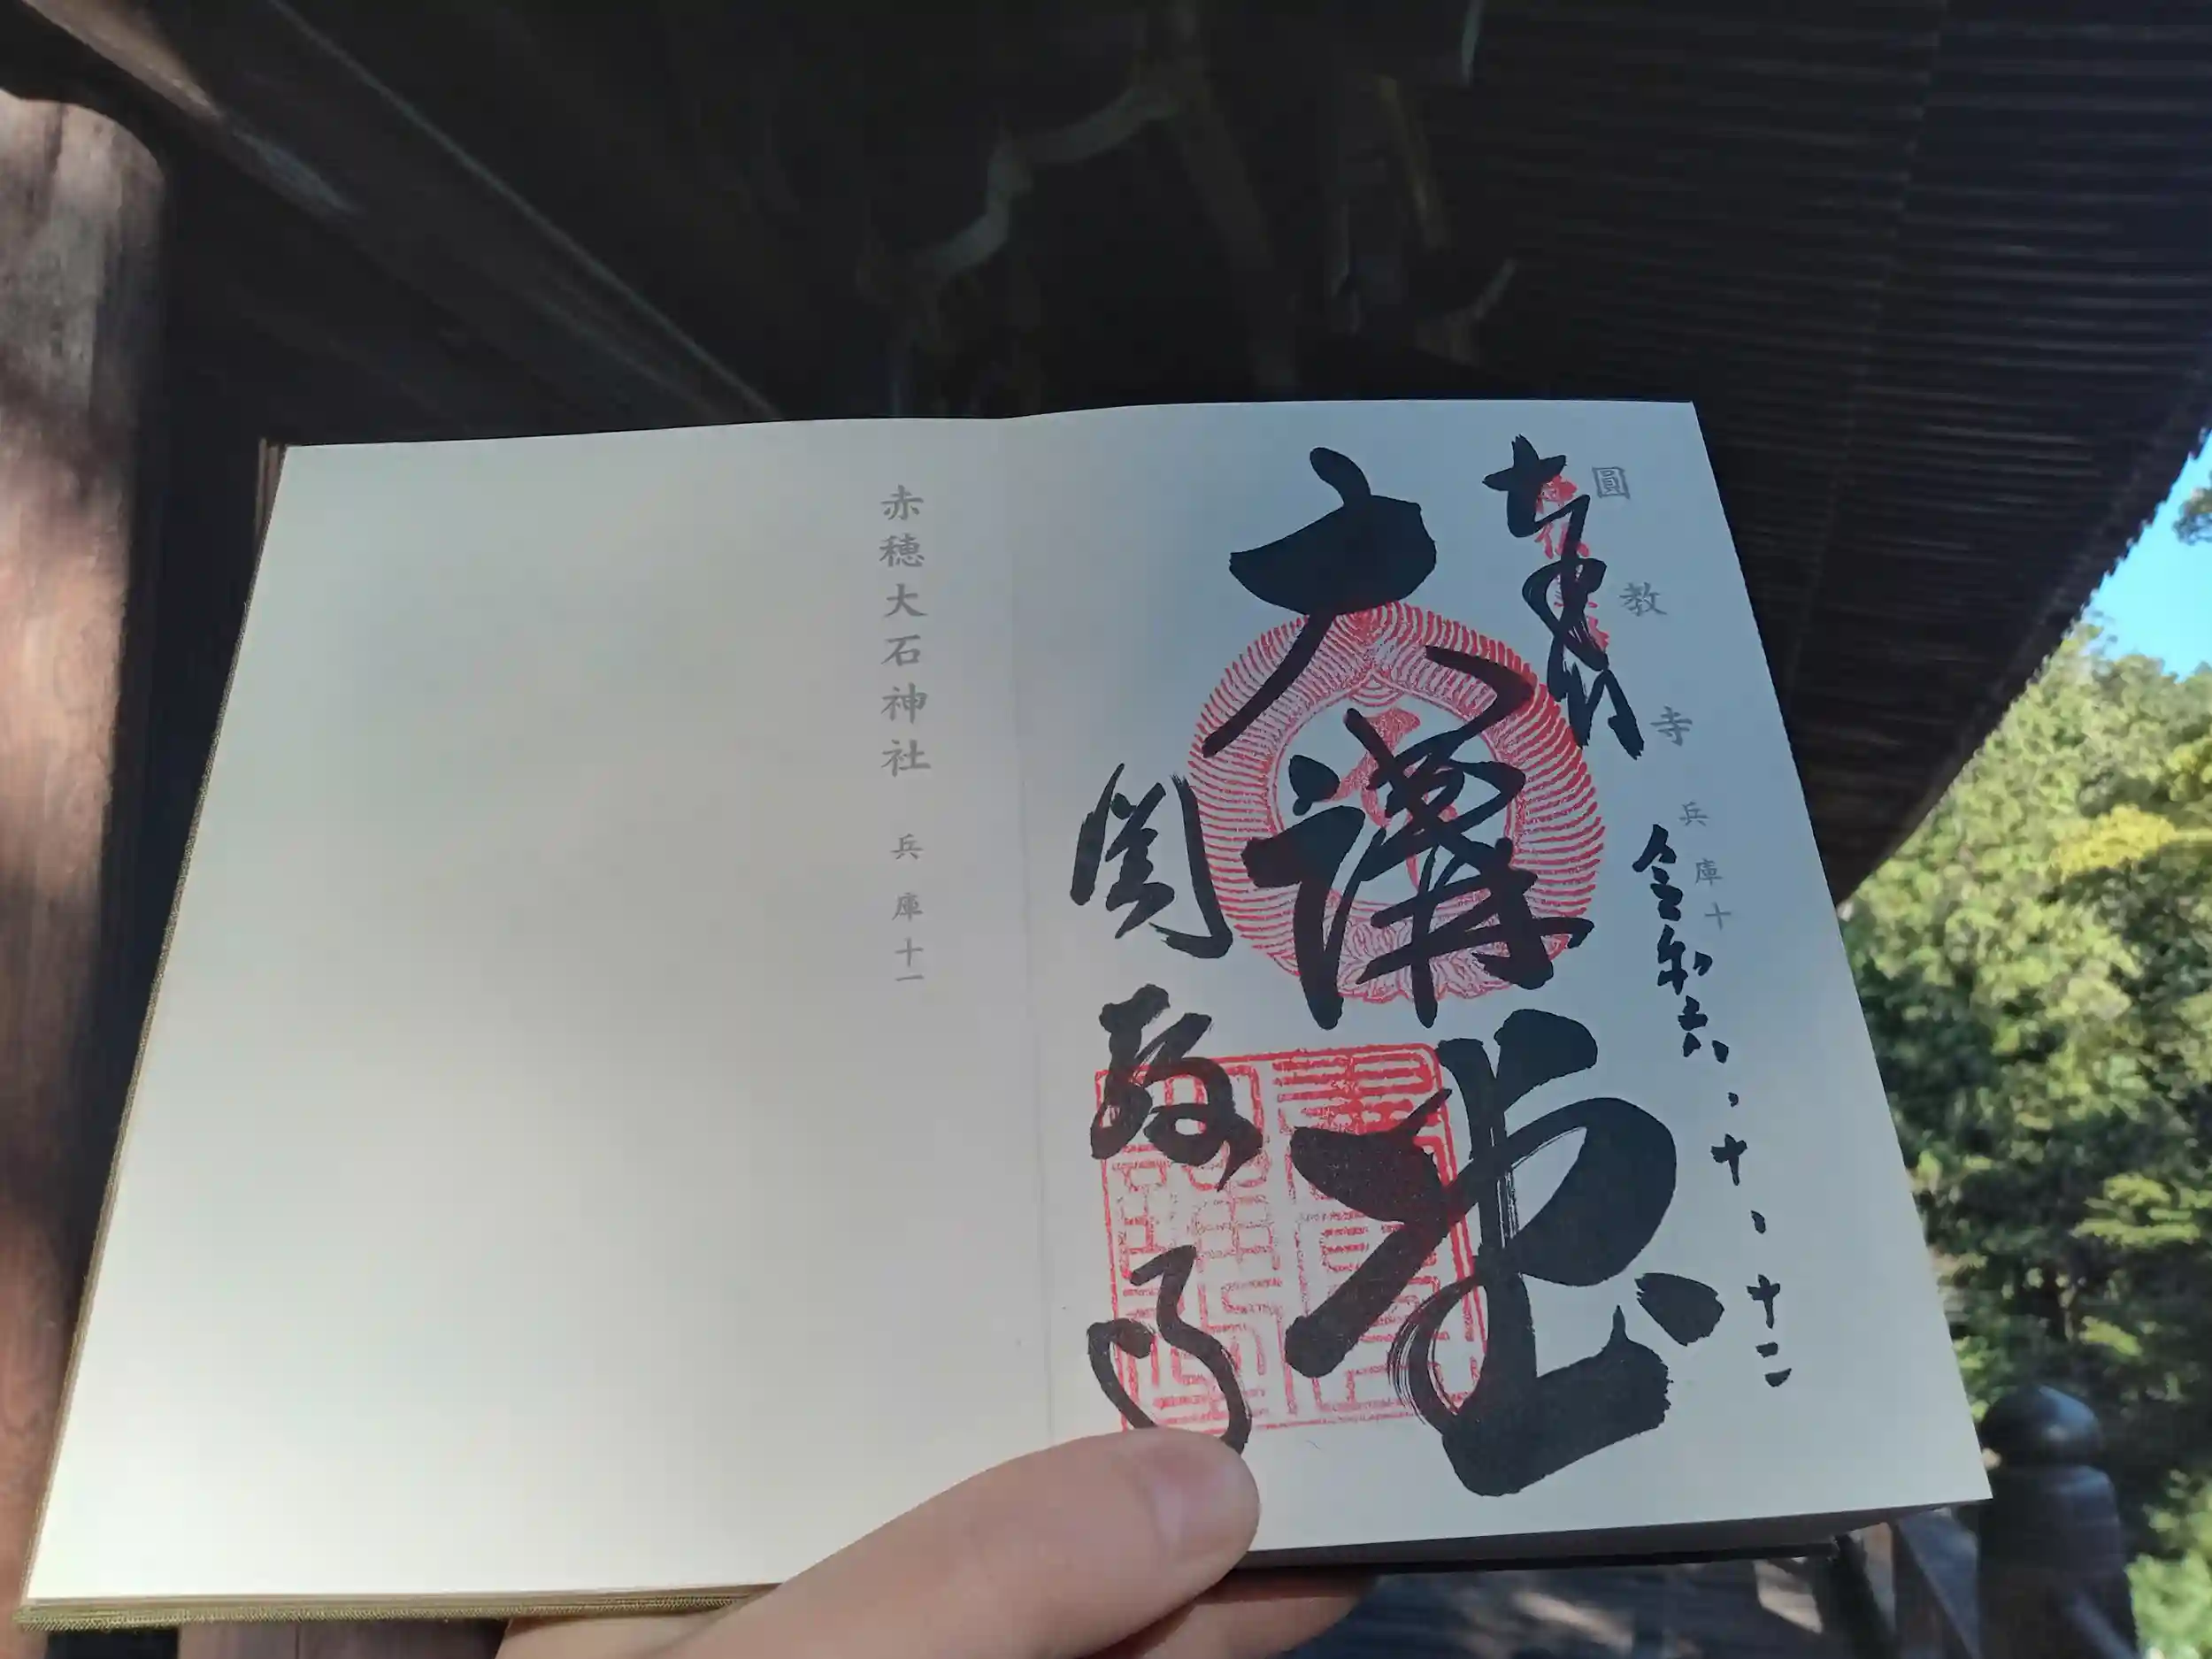 圓教寺 兵庫十
奉拝
令和六、十、十二
大講堂
圓教寺
赤穂大石神社 兵庫十一